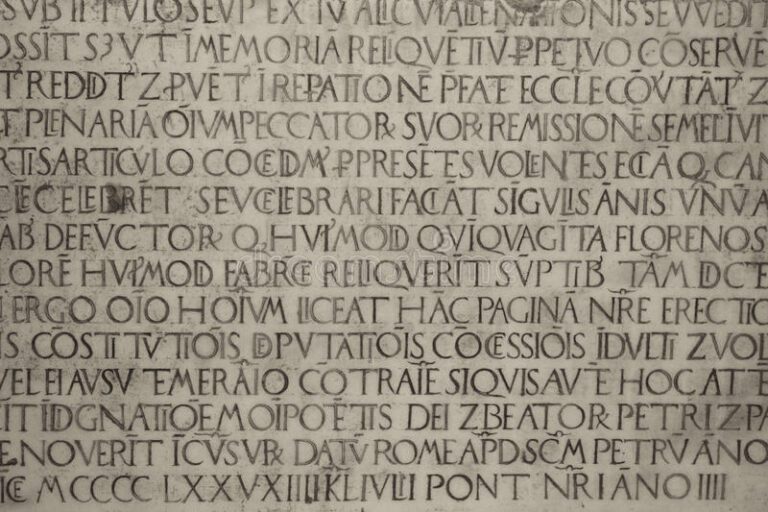 SVB TITVLO SEV P EX TV ALIC VIALIENATIONIS SEV VEDIT
OSSĪTS3 VT Ī MEMORIĀ RELIQVĒTIV̄ PPETVO CŌSERVĒ
T REDDIT Z PVĒT Ī REPATIONĒ PFATE ECCLE CŌVTĀT Z
ET PLENARIĀ OĪVM PECCATOR SVOR REMISSIONĒ SEMEL Ī VIT
RTIS ARTICVLO COCEDIM PPRESĒTES VOLENTES ECĪĀ Q CAN
CELEBRĒT SEV CELEBRARI FACIĀT SĪGVLIS ĀNIS VNV̄ A
AB DEFV̄CTOR Q HVIMOD QVĪQVAGĪTA FLORENOS
LORĒ HVIMODI FABRICE RELIQVERĪT SVPTIB TĀM DICTE
ERGO OĪO HOIVM LICEAT HĀC PAGINĀ NRE ERECTIO
IS CŌSTITVTIŌIS DEPVTATIŌIS CŌCESSIŌIS IDVLTI Z VOL
VEL EI AVSV TEMERĀIO COTRAĪE SIQVIS AVTĒ HOC ATTĒ
IT IDIGNATIŌĒ MOIPOĒTIS DEI Z BEATOR PETRI Z PA
E NOVERIT ĪCVSVR DATV̄ ROME APD SCM PETRV̄ ANO
ICE MCCCC LXXVXIIII KL IVLII PONT NRI ĀNO IIII